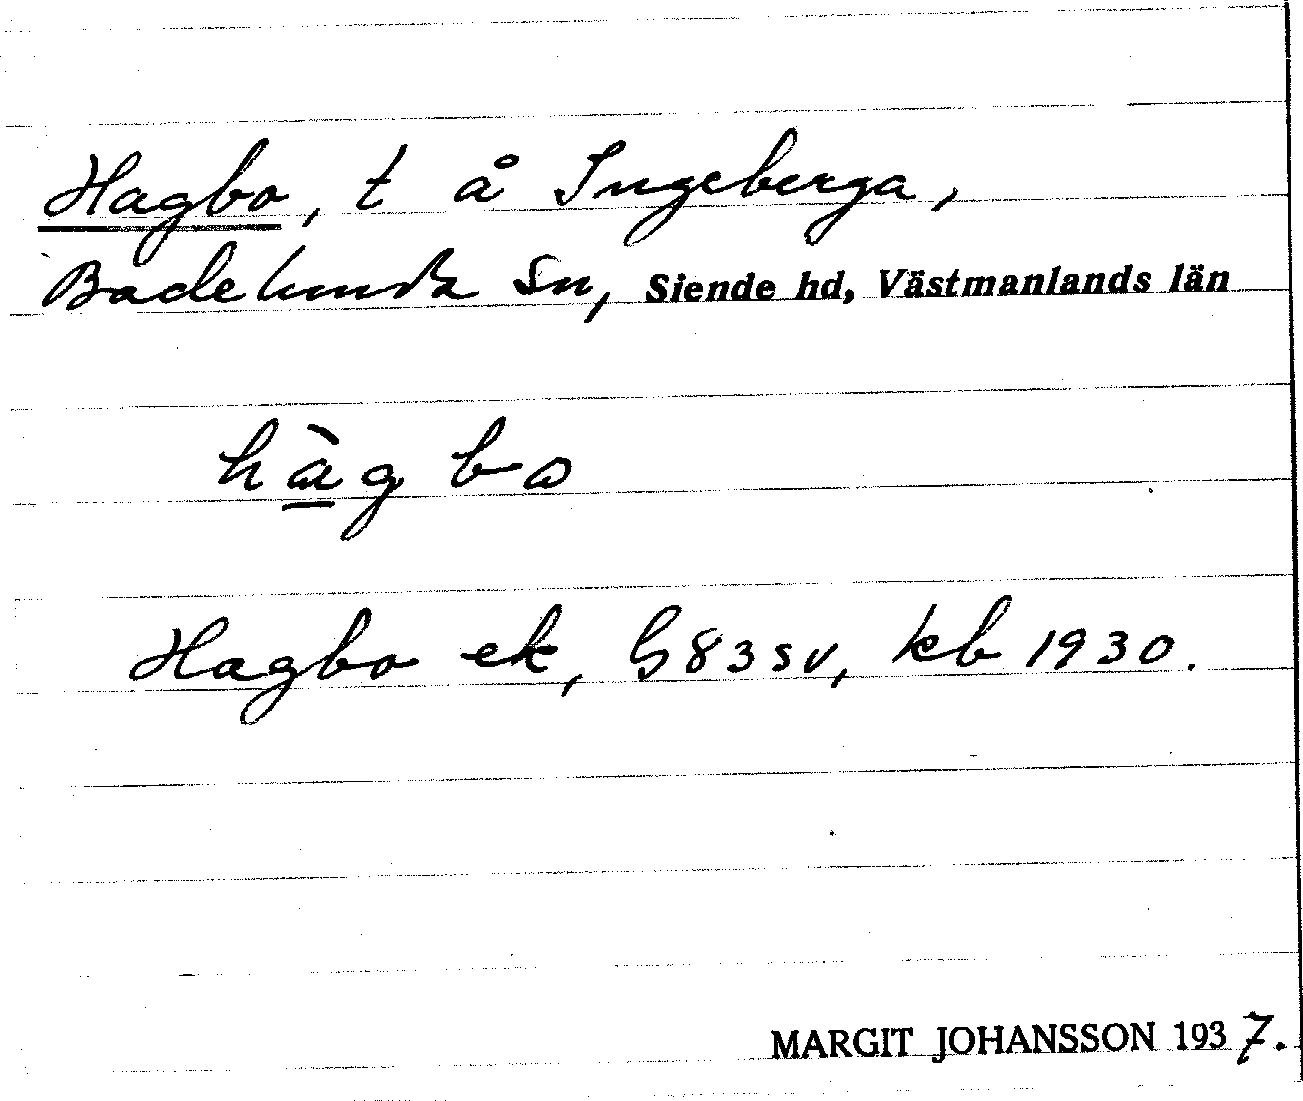 Hagbo, t å Ingeberga,
Badelunda sn, Siende hd, Västmanlands län
hàg bo
Hagbo ek, G83sv, kb 1930.
MARGIT JOHANSSON 1937.